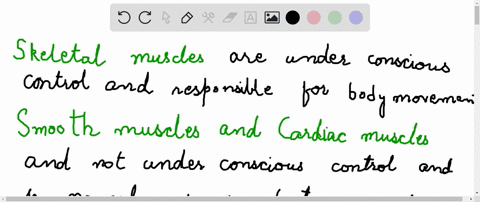 Skeletal muscles are under conscious
control and responsible for body movemen
Smooth muscles and Cardiac muscles
and not under conscious control and